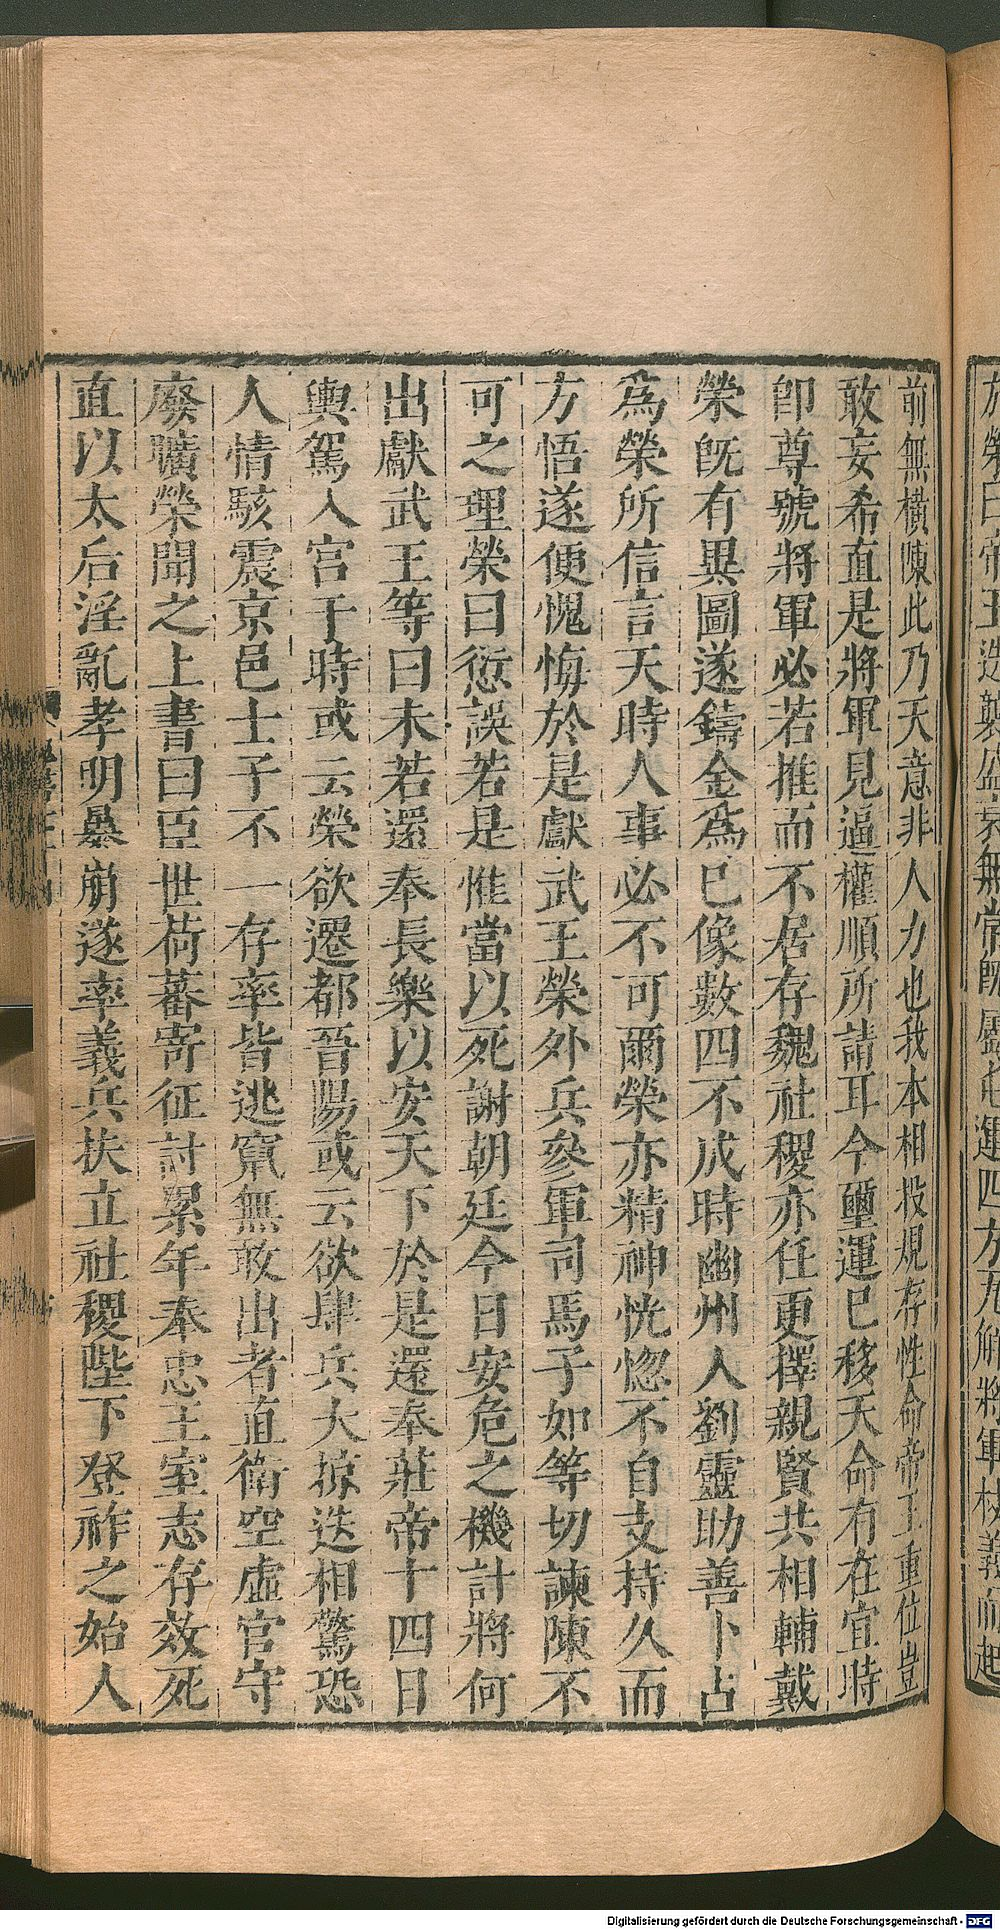 前無橫陳此乃天意非人力也我本相投規存性命帝王重位豈
敢妄希直是將軍見逼權順所請耳今璽運已移天命有在宜時
即尊號將軍必若推而不居存魏社稷亦任更擇親賢共相輔戴
榮既有異圖遂鑄金爲已像數四不成時幽州人劉靈助善卜占
爲榮所信言天時人事必不可爾榮亦精神恍惚不自支持久而
方悟遂便愧悔於是獻武王榮外兵參軍司馬子如等切諫陳不
可之理榮曰愆誤若是惟當以死謝朝廷今日安危之機計將何
出獻武王等曰未若還奉長樂以安天下於是還奉莊帝十四日
輿駕入宮于時或云榮欲遷都晉陽或云欲肆兵大掠迭相驚恐
人情駭震京邑士子不一存率皆逃竄無敢出者直衛空虛官守
廢曠榮聞之上書曰臣世荷蕃寄征討累年奉忠王室志存效死
直以太后淫亂孝明暴崩遂率義兵扶立社稷陛下登祚之始人
Digitalisierung gefördert durch die Deutsche Forschungsgemeinschaft - DFG